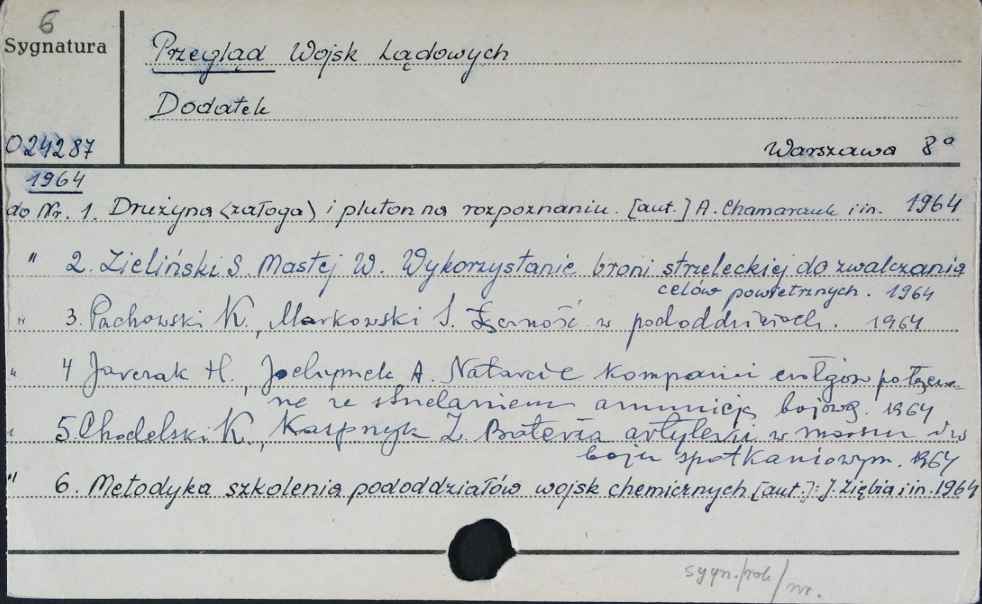 6
Sygnatura
Przegląd Wojsk Lądowych
Dodatek
024287
Warszawa 8°
1964
do Nr. 1. Drużyna (załoga) i pluton na rozpoznaniu. [aut.] A. Chamarczuk i in. 1964
" 2. Zieliński S. Mastej W. Wykorzystanie broni strzeleckiej do zwalczania
celów powietrznych. 1964
" 3. Pachowski K., Markowski S. Łączność w pododdziałach. 1964
" 4 Jarczak H., A. Natarcie kompanii czołgów połączo-
ne ze strzelaniem amunicją bojową. 1964
" 5. Chodelski K., Karpnyk Z. Bateria artylerii w marszu i w
boju spotkaniowym. 1964
" 6. Metodyka szkolenia pododdziałów wojsk chemicznych [aut.]: J. Ziębia i in. 1964
sygn./rok/nr.